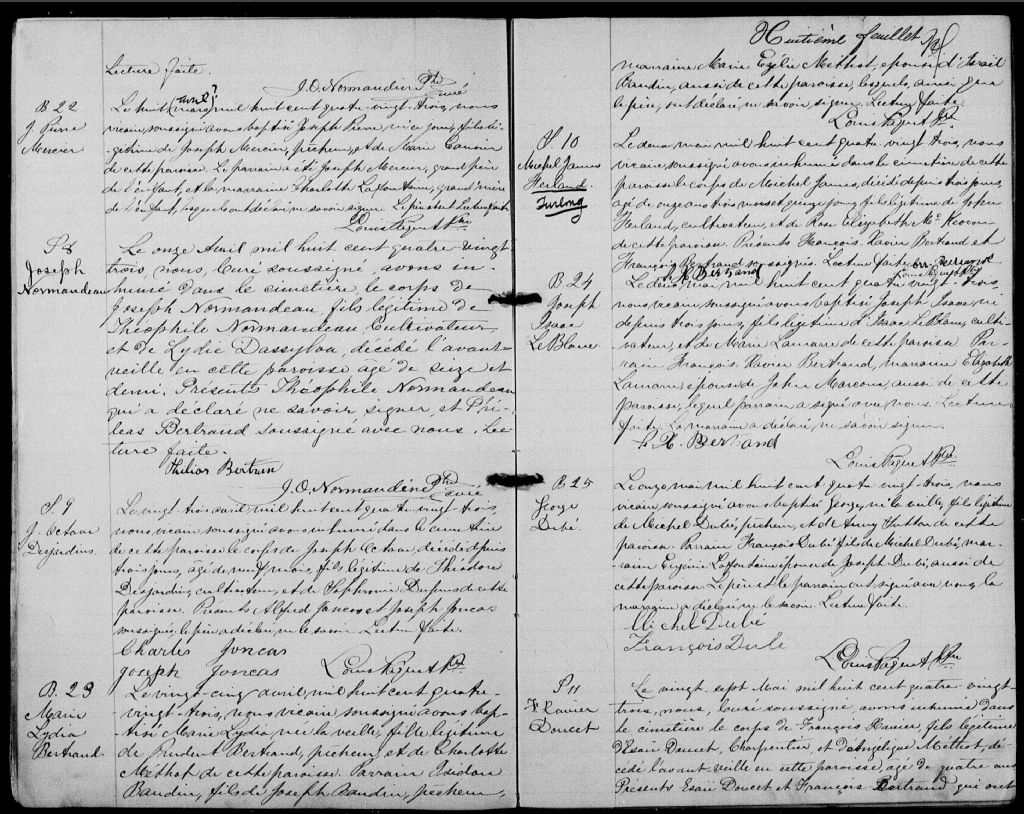 Lecture faite.
J. O. Normandin Ptre
curé
B 22
J. Pierre
Mercier
avril?
Le huit (mars) mil huit cent quatre-vingt-trois, nous
vicaire soussigné avons baptisé Joseph Pierre né ce jour, fils lé-
gitime de Joseph Mercier, pêcheur, et de Marie
de cette paroisse. Le parrain a été Joseph Mercier, grand père
de l'enfant, et la marraine Charlotte Lafontaine, grand'mère
de l'enfant, lesquels ont déclaré ne savoir signer. Lecture faite
Louis Paquet Ptre
Joseph
Normandeau
Le onze Avril mil huit cent quatre-vingt
trois, nous, Curé soussigné, avons in-
humé dans le cimetière le corps de
Joseph Normandeau, fils légitime de
Théophile Normandeau Cultivateur
et de Lydie Dassylva, décédé l'avant-
veille en cette paroisse agé de seize et
demi. Présents Théophile Normandeau
qui a déclaré ne savoir signer, et Phi-
leas Bertrand soussigné avec nous. Lec-
ture faite.
Philias Bertran
J. O. Normandin Ptre
curé
S. 9
J. Octave
Desjardins
Le vingt-trois avril mil huit cent quatre vingt-trois,
nous vicaire soussigné avons inhumé dans le cimetière
de cette paroisse le corps de Joseph Octave, décédé depuis
trois jours, âgé de neuf mois, fils légitime de Théodore
Desjardins, cultivateur, et de Sophronie Dufresne de cette
paroisse. Présents Alfred Joncas et Joseph Joncas
soussignés, le père a déclaré ne le savoir. Lecture faite.
Charles Joncas
Joseph Joncas Louis Paquet Ptre
B. 23
Marie
Lydia
Bertrand
Le vingt-cinq avril, mil huit cent quatre-
vingt-trois, nous vicaire soussigné avons bap-
tisé Marie Lydia née la veille, fille légitime
de Prudent Bertrand, pêcheur, et de Charlotte
Methot de cette paroisse. Parrain Isidore
Baudin, fils de Joseph Baudin, pêcheur,
Huitième feuillet
marraine Marie Exélie Methot, épouse d'Israël
Baudin, aussi de cette paroisse, lesquels, ainsi que
le père, ont déclaré ne savoir signer. Lecture faite
Louis Paquet Ptre
S. 10
Michel James
Herland
Furlong
Le deux mai mil huit cent quatre vingt trois, nous
vicaire soussigné avons inhumé dans le cimetière de cette
paroisse le corps de Michel James, décédé depuis trois jours,
agé de onze ans trois mois et quinze jours, fils légitime de John
Herland, cultivateur, et de Rose Elizabeth Mc Keovon
de cette paroisse. Présents François Xavier Bertrand et
François Bertrand soussignés. Lecture faite.
Bertrand
Louis Paquet Ptre
B 24
Joseph
Isaac
LeBlanc
Le deux mai mil huit cent quatre vingt-trois,
nous vicaire soussigné avons baptisé Joseph Isaac né
depuis trois jours, fils légitime d'Isaac LeBlanc, culti-
vateur, et de Marie Lamarre de cette paroisse. Par-
rain François Xavier Bertrand, marraine Elizabeth
Lamarre épouse de John Marcoux, aussi de cette
paroisse, lequel parrain a signé avec nous. Lecture
faite. La marraine a déclaré ne savoir signer.
F. X. Bertrand
Louis Paquet Ptre
B 25
George
Dubé
Le onze mai mil huit cent quatre vingt-trois, nous
vicaire soussigné avons baptisé George né la veille, fils légitime
de Michel Dubé, pêcheur, et d'Anny Hutton de cette
paroisse. Parrain François Dubé fils de Michel Dubé, mar-
raine Eugénie Lafontaine épouse de Joseph Dubé, aussi de
cette paroisse. Le père et le parrain ont signé avec nous, la
marraine a déclaré ne le savoir. Lecture faite.
Michel Dubé
François Dubé
Louis Paquet Ptre
P 11
F. Xavier
Doucet
Le vingt-sept Mai mil huit cent quatre-vingt-
trois, nous, Curé soussigné, avons inhumé dans
le cimetière le corps de François Xavier, fils légitime
d'Esaïe Doucet, Charpentier, et d'Angélique Méthot, dé-
cédé l'avant-veille en cette paroisse, agé de quatre ans
Présents Esaïe Doucet et François Bertrand qui ont